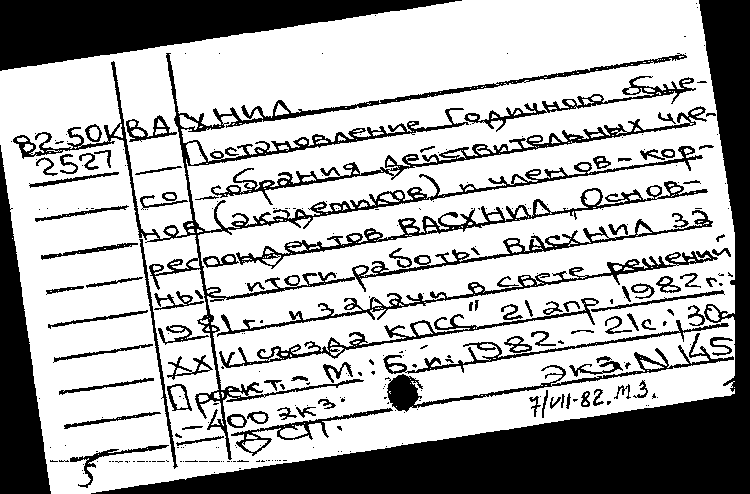 82-50К ВАСХНИЛ.
2527 Постановление Годичного обще-
го собрания действительных чле-
нов (академиков) и членов-кор-
респондентов ВАСХНИЛ „Основ-
ные итоги работы ВАСХНИЛ за
1981г. и задачи в свете решений
XXVI съезда КПСС" 21 апр. 1982г.:
Проект. - М.: Б.и., 1982. - 21с.; 30см
- 400 экз.
ДСП. Экз. N 145
7/VII-82. М.З.
5